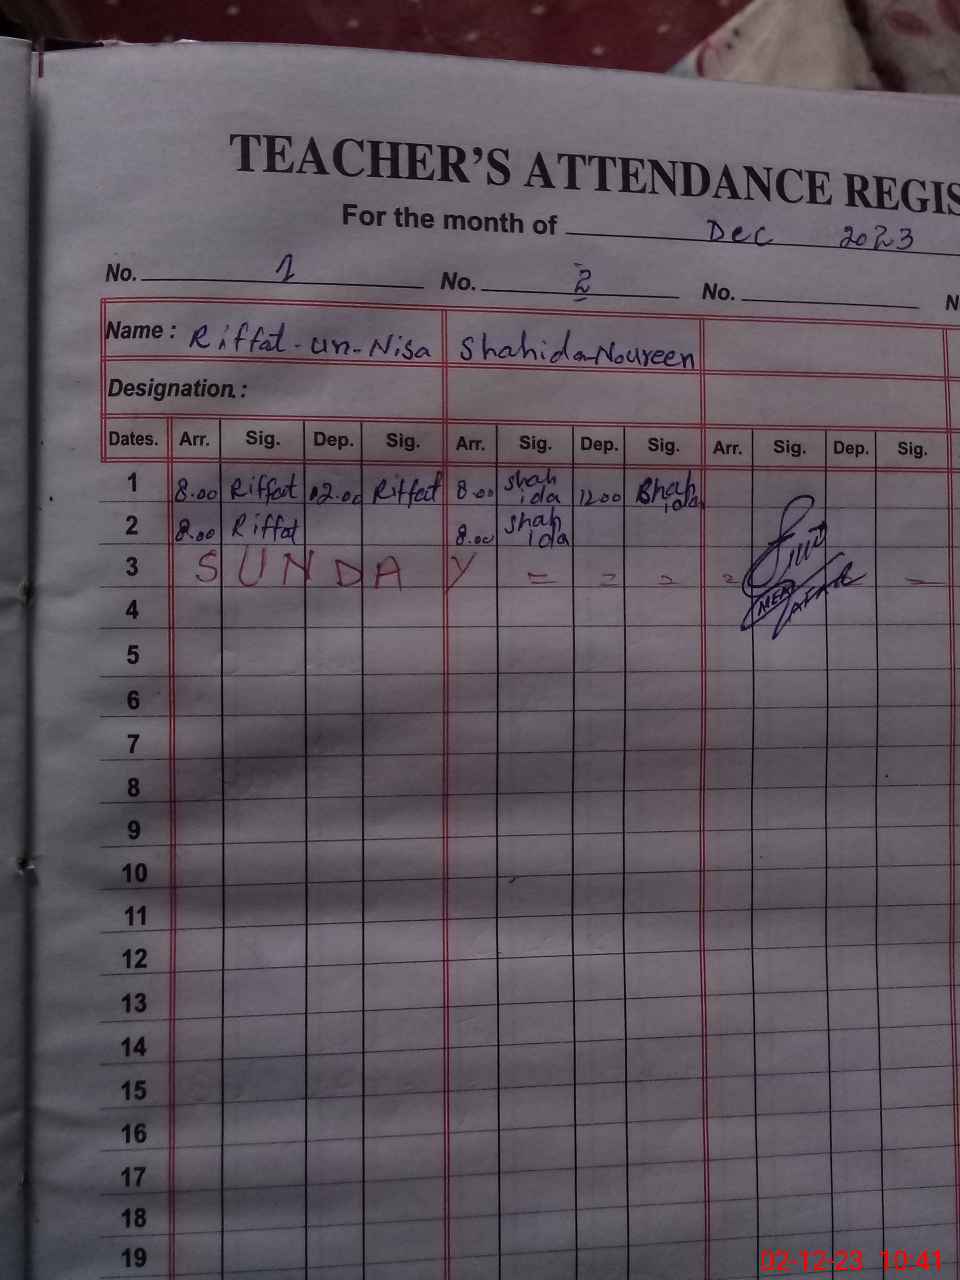 TEACHER'S ATTENDANCE REGIS
For the month of Dec 2023
No. 1 No. 2 No. N
Name : Riffat-un-Nisa Shahida Noureen
Designation :
Dates. Arr. Sig. Dep. Sig. Arr. Sig. Dep. Sig. Arr. Sig. Dep. Sig.
1 8.00 Riffat 12.00 Riffat 8.00 Shahida 1200 Shahida
2 8.00 Riffat 8.00 Shahida
3 SUNDAY = = = = =
MEA
4
5
6
7
8
9
10
11
12
13
14
15
16
17
18
19
02-12-23 10:41